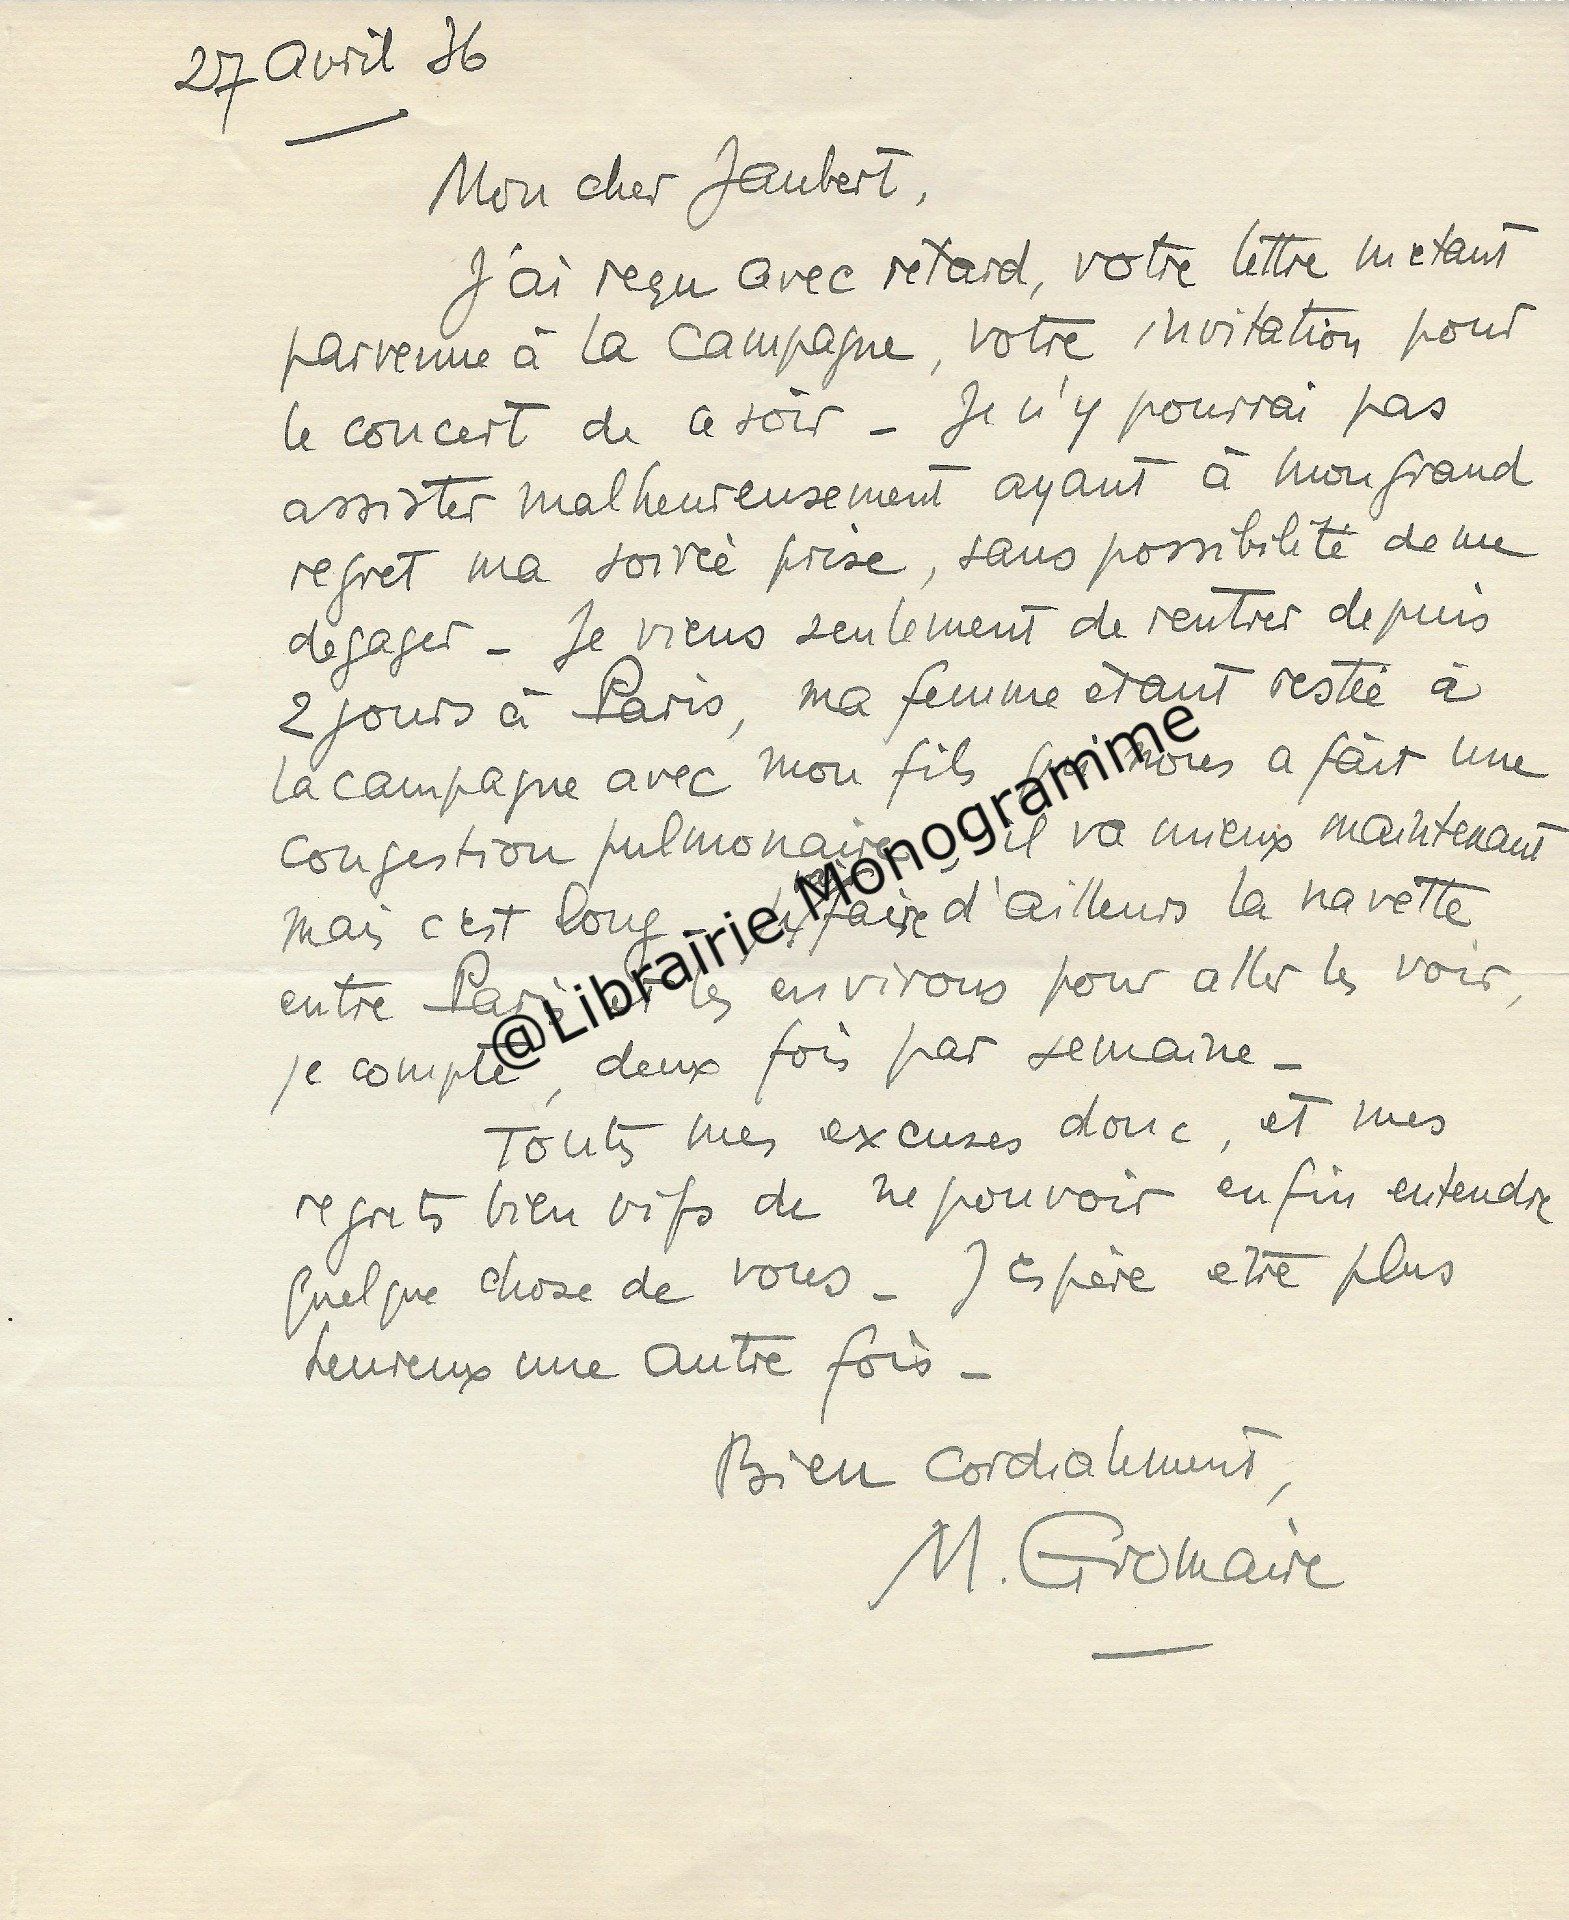 27 Avril 36
Mon cher Jaubert,
J'ai reçu avec retard, votre lettre m'étant
parvenue à la campagne, votre invitation pour
le concert de ce soir – Je n'y pourrai pas
assister malheureusement ayant à mon grand
regret ma soirée prise, sans possibilité de me
dégager – Je viens seulement de rentrer depuis
2 jours à Paris, ma femme étant restée à
la campagne avec mon fils qui nous a fait une
congestion pulmonaire, il va mieux maintenant
mais c'est long – faire d'ailleurs la navette
entre Paris et les environs pour aller les voir,
je compte, deux fois par semaine –
Toutes mes excuses donc, et mes
regrets bien vifs de ne pouvoir enfin entendre
quelque chose de vous – J'espère être plus
heureux une autre fois –
Bien cordialement,
M. Gromaire
@Librairie Monogramme